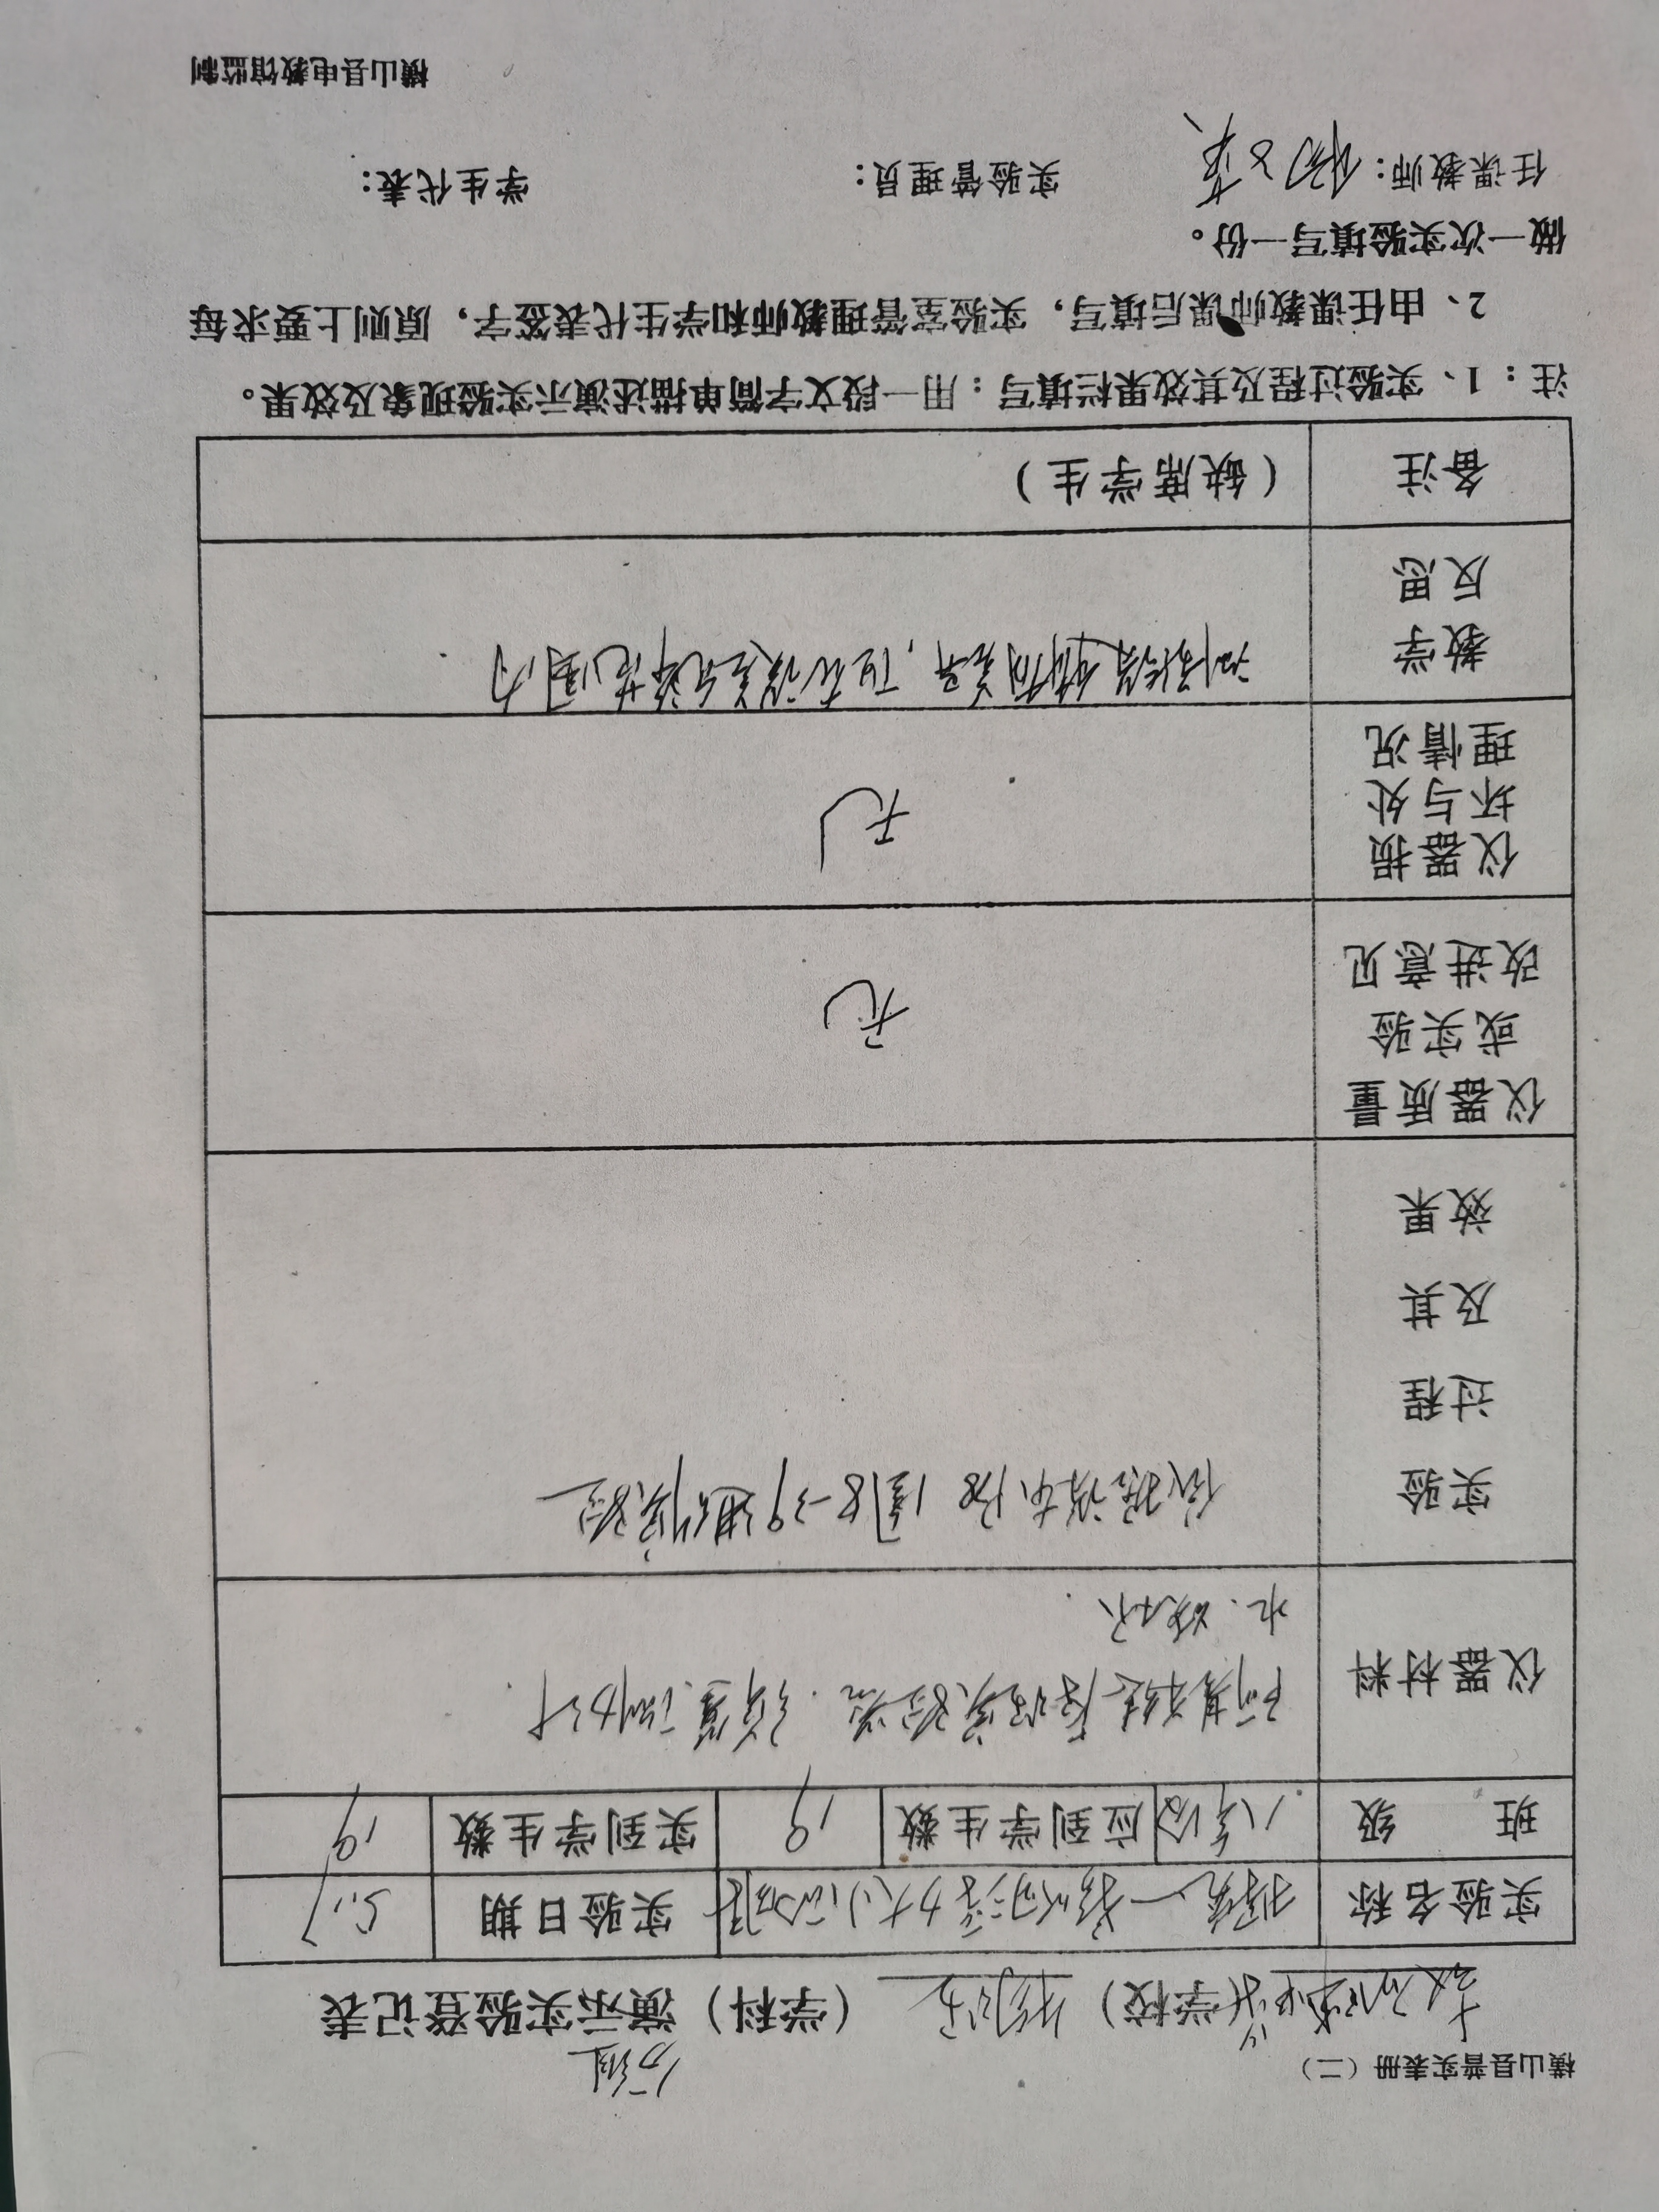 横山县普实表册（二）
分组
（学校）物理（学科）演示实验登记表
实验名称 探究一 浮力大小 实验日期 5.17
班 级 八年级 应到学生数 19 实到学生数 19
仪器材料 阿基米德原理实验器、弹簧测力计
水、烧杯
实验 依据课本 图8-39进行实验
过程
及其
效果
仪器质量
或实验
改进意见
无
仪器损
坏与处
理情况
无
教学
反思
测得结果稍有差异，但在误差允许范围内
备注 （缺席学生）
注：1、实验过程及其效果栏填写：用一段文字简单描述演示实验现象及效果。
2、由任课教师课后填写，实验室管理教师和学生代表签字，原则上要求每
做一次实验填写一份。
任课教师： 实验管理员： 学生代表：
横山县电教馆监制